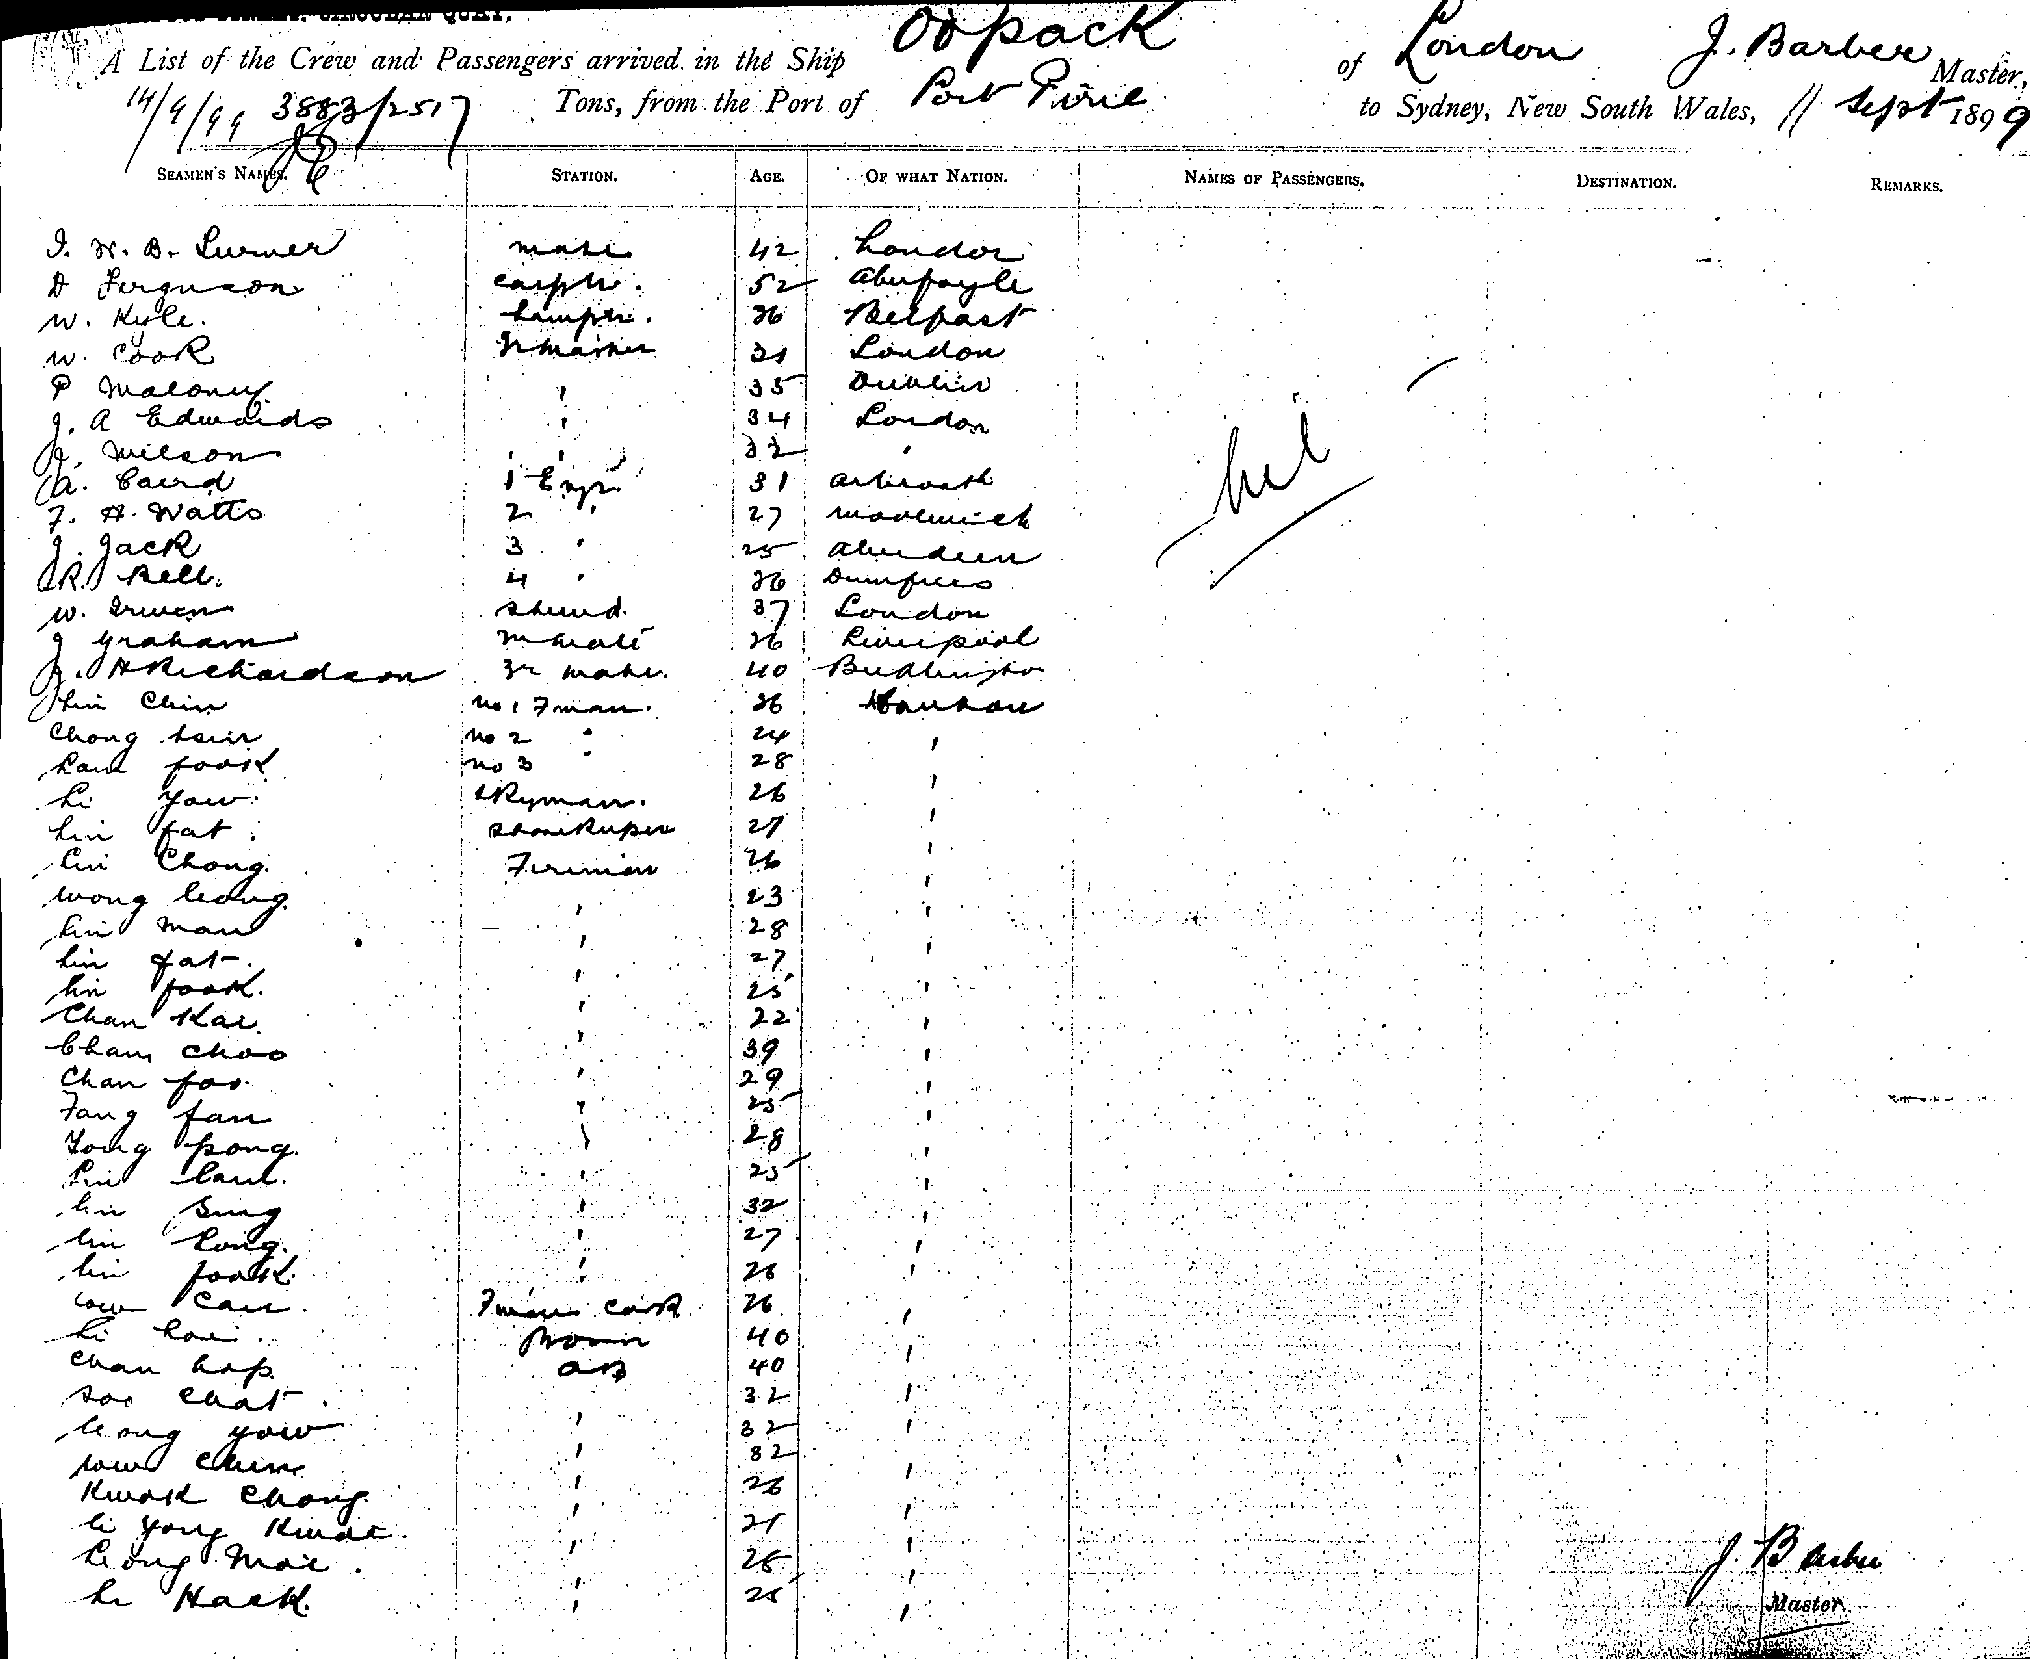 CIRCULAR QUAY.
A List of the Crew and Passengers arrived in the Ship Oopack of London J. Barber Master,
14/9/99 3883/2517 Tons, from the Port of Port Pirie to Sydney, New South Wales, 11 Sept 1899
SEAMEN'S NAMES. STATION. AGE. OF WHAT NATION. NAMES OF PASSENGERS. DESTINATION. REMARKS.
W. B. mate 42 London
D Ferguson carptr. 52 Aberfoyle
W. Kyle. 36 Belfast
W. Cook 31 London
P Maloney " 35 Dublin
J. A Edwards " 34 London
J. Wilson " " 32 "
A. Caird 1 Engr. 31 Arbroath
F. H. Watts 2 " 27 Woolwich
J. Jack 3 " 25 Aberdeen
R. Bell. 4 " 26 Dumfries
W. Irwen 37 London
J Graham 26 Liverpool
J. H Richardson 3r mate. 40
Lin Chin No 1 Fman. 36 Hankow
Chong No 2 " 24 "
fook No 3 " 28 "
Li Yow 26 "
Lin fat 27 "
Lin Chong. Fireman 26 "
Wong Leong. " 23 "
Lin Man " 28 "
Lin fat. " 27 "
Lin fook. " 25 "
Chan Kai. " 22 "
Cham Choo " 39 "
Chan foo. " 29 "
Fang fan " 25 "
Tong pong. " 28 "
Lin " 25 "
Lin Sing " 32 "
Lin Long. " 27 "
Lin fook. " 26 "
Fmans Cook 26 "
Li 40 "
Chan hop. AB 40 "
Soo Chat. " 32 "
Leong Yow " 32 "
" 32 "
Kwok Chong. " 26 "
Li Yong " 21 "
Leong Moi. " 25 "
Li Hack. " 25 "
nil
J. Barber
Master